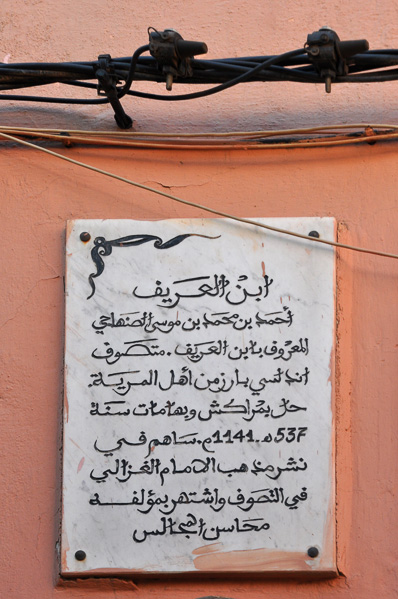 ابن العريف
أحمد بن محمد بن موسى الصنهاجي
المعروف بابن العريف. متصوف
اندلسي بارز من أهل المرية.
حل بمراكش وبها مات سنة
537هـ.1141م. ساهم في
نشر مذهب الامام الغزالي
في التصوف واشتهر بمؤلفه
محاسن المجالس